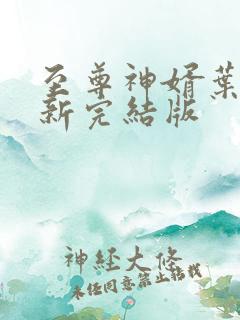 至尊神婿葉
新完結版
神經大修
未经同意禁止搭载